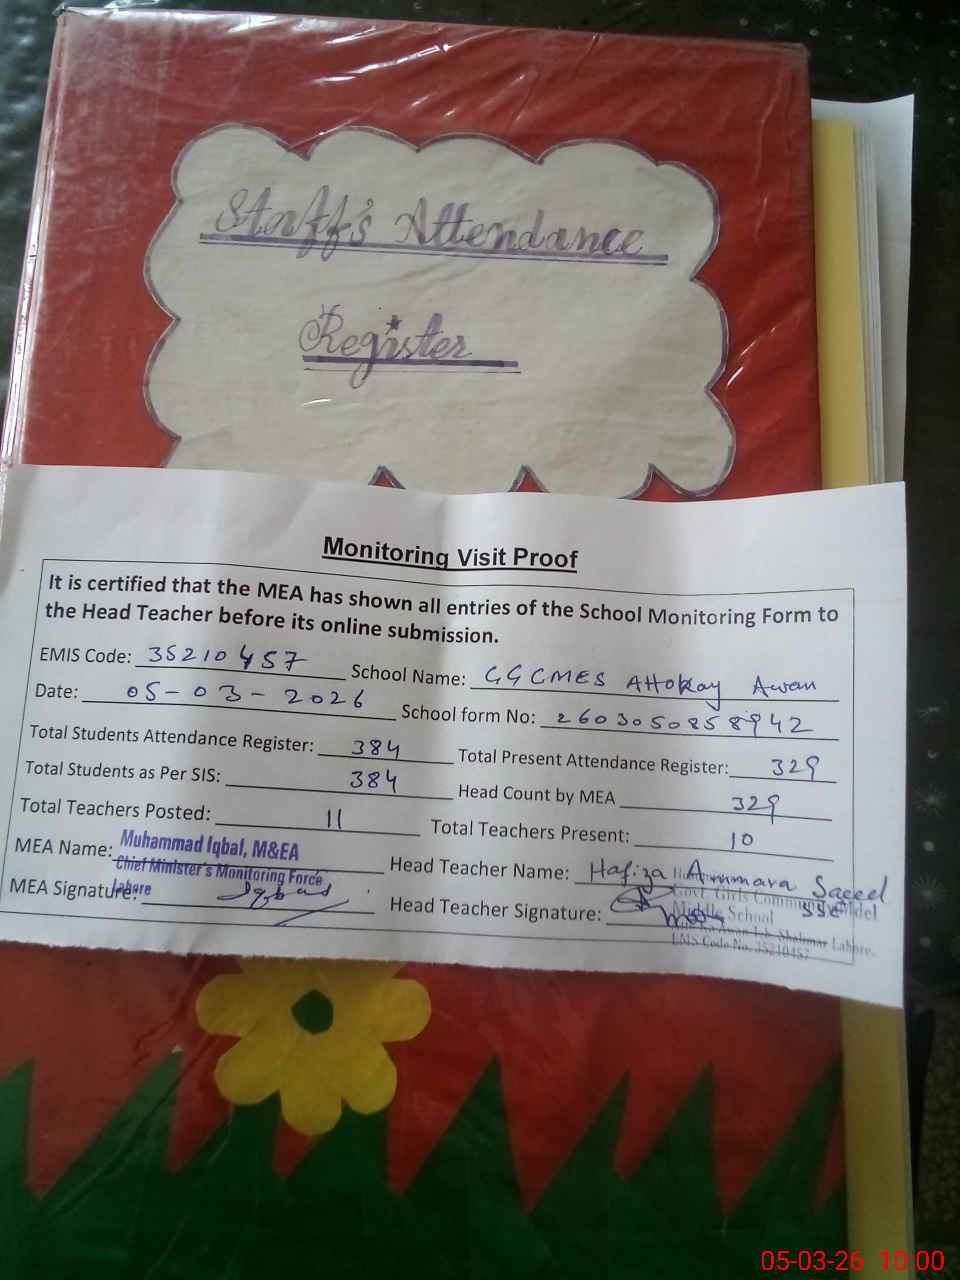 Staff's Attendance
Register
Monitoring Visit Proof
It is certified that the MEA has shown all entries of the School Monitoring Form to
the Head Teacher before its online submission.
EMIS Code: 35210457 School Name: GGCMES Attokay Awan
Date: 05-03-2026 School form No: 2603050858942
Total Students Attendance Register: 384 Total Present Attendance Register: 329
Total Students as Per SIS: 384 Head Count by MEA 329
Total Teachers Posted: 11 Total Teachers Present: 10
MEA Name: Muhammad Iqbal, M&EA Head Teacher Name: Hafiza Ammara Saeed
Chief Minister's Monitoring Force SSE
Lahore
MEA Signature: Iqbal Head Teacher Signature:
Govt. Girls Community Model
Middle School
Awan Shalimar Lahore.
EMIS Code No. 35210457
05-03-26 10:00